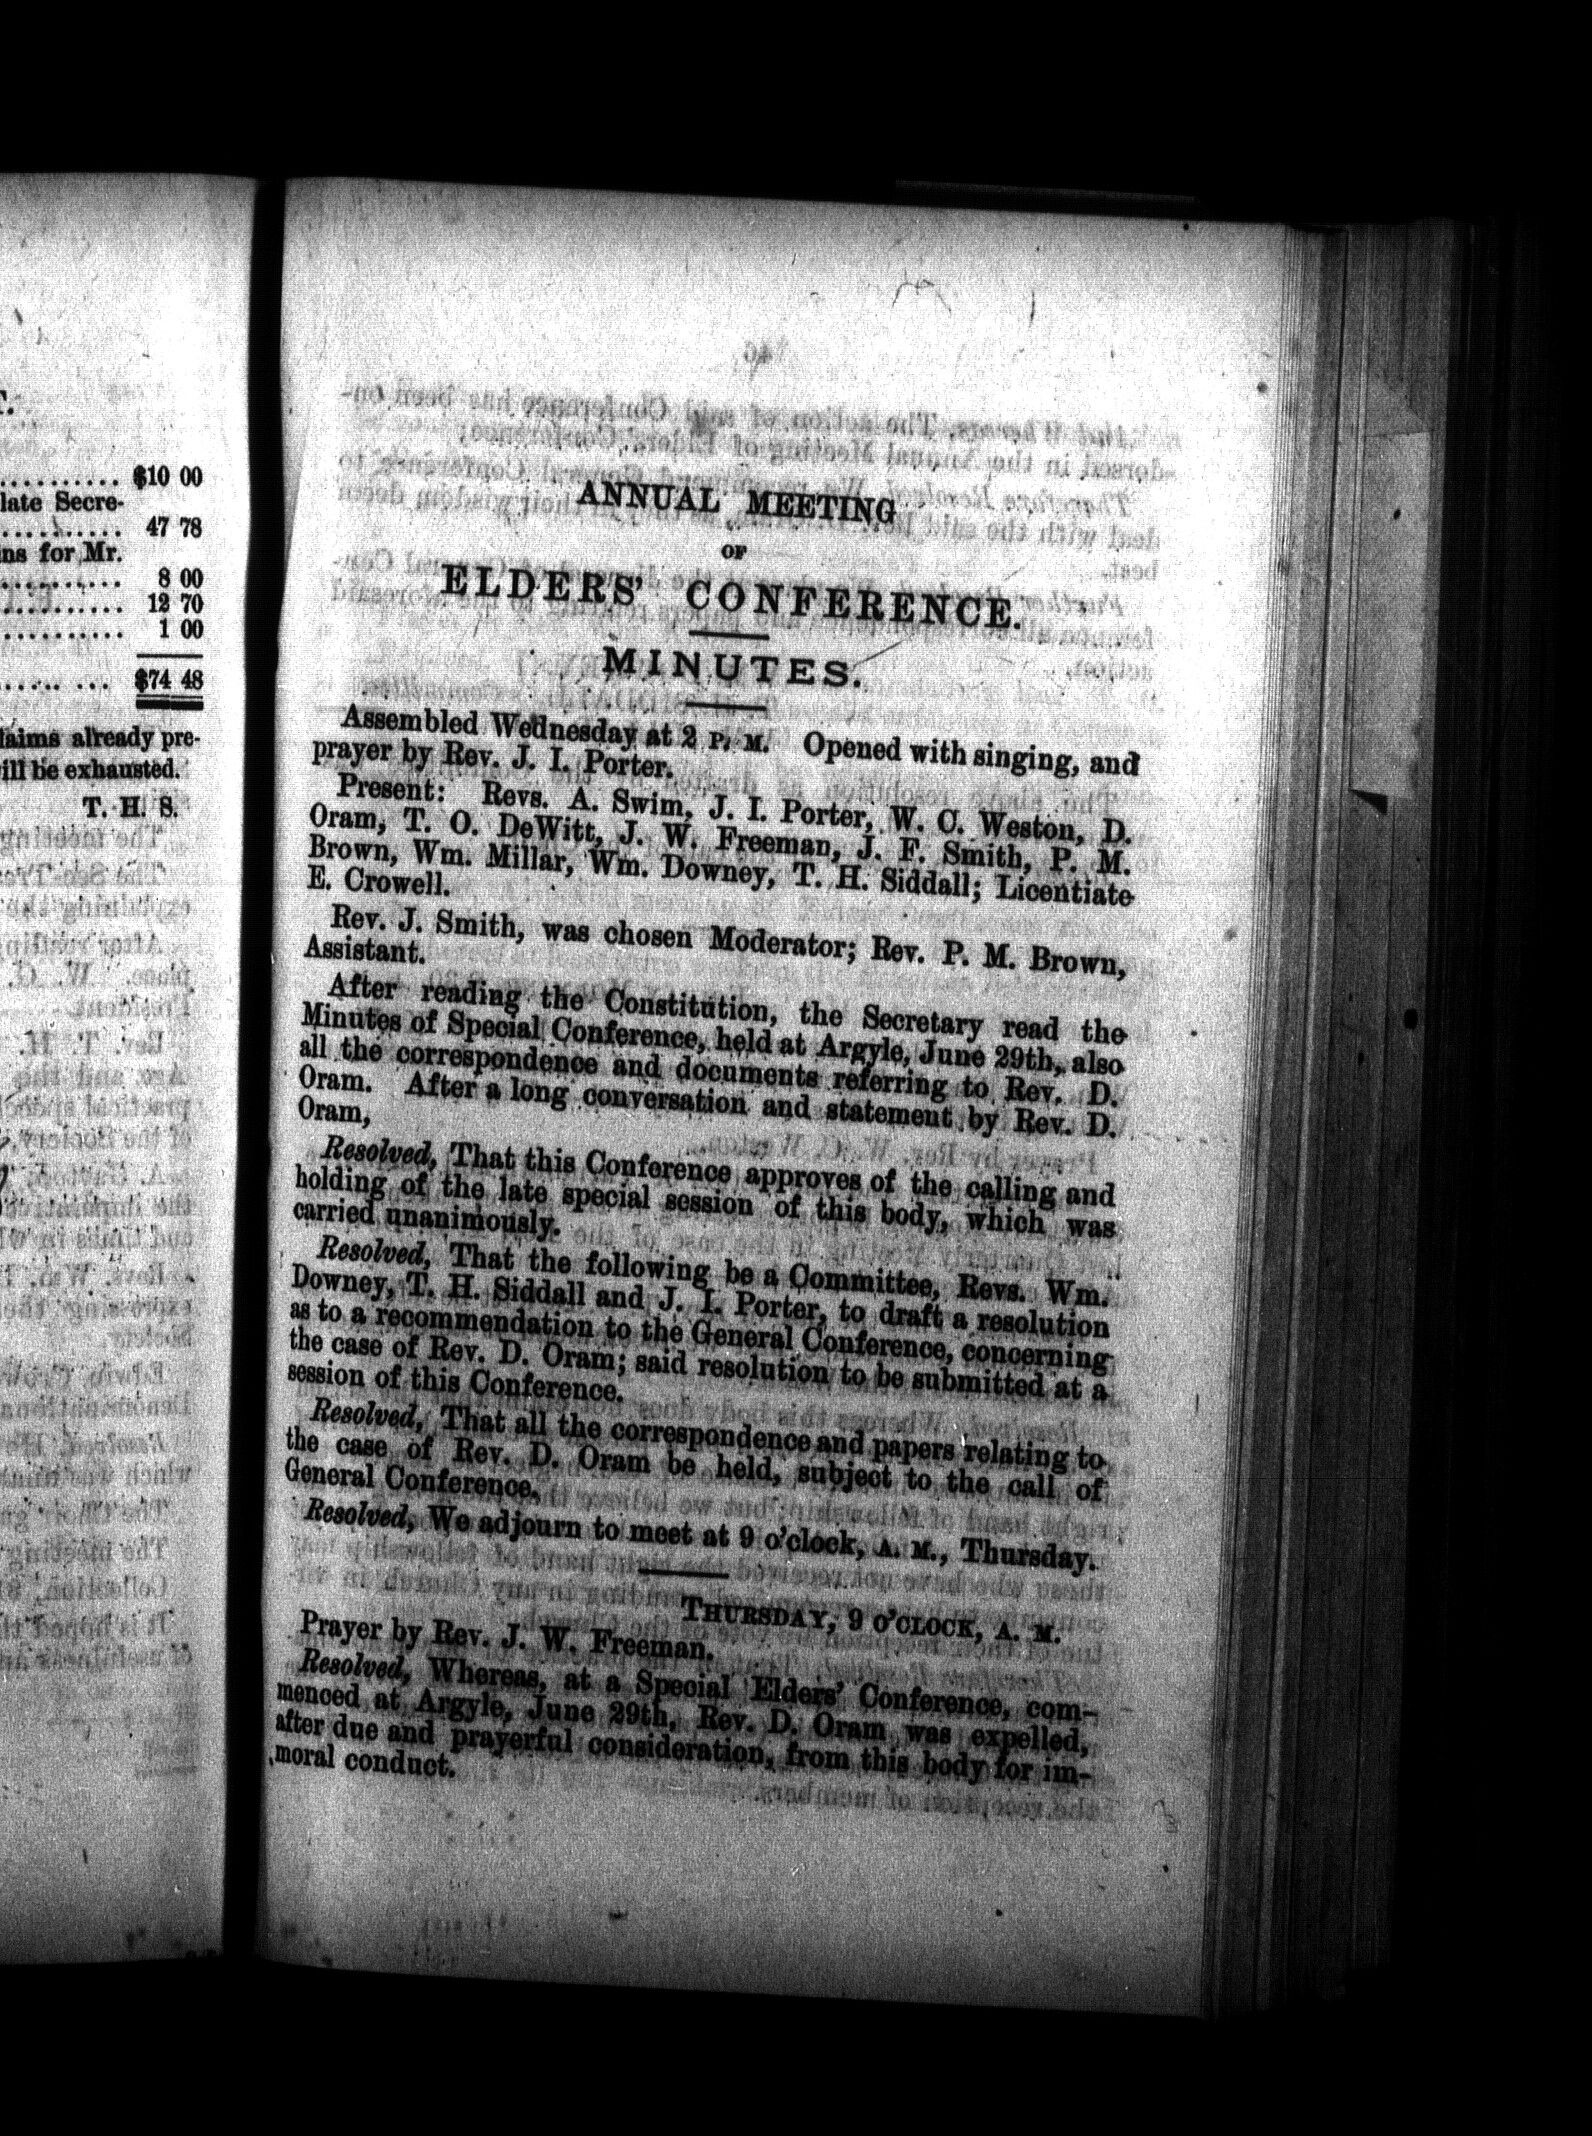 T.
.......... $10 00
late Secre-
.......... 47 78
ns for Mr.
.......... 8 00
.......... 12 70
.......... 1 00
...... ... $74 48
laims already pre-
ill be exhausted.
T. H. S.
ANNUAL MEETING
OF
ELDERS' CONFERENCE.
MINUTES.
Assembled Wednesday at 2 P. M. Opened with singing, and
prayer by Rev. J. I. Porter.
Present: Revs. A. Swim, J. I. Porter, W. C. Weston, D.
Oram, T. O. DeWitt, J. W. Freeman, J. F. Smith, P. M.
Brown, Wm. Millar, Wm. Downey, T. H. Siddall; Licentiate
E. Crowell.
Rev. J. Smith, was chosen Moderator; Rev. P. M. Brown,
Assistant.
After reading the Constitution, the Secretary read the
Minutes of Special Conference, held at Argyle, June 29th, also
all the correspondence and documents referring to Rev. D.
Oram. After a long conversation and statement by Rev. D.
Oram,
Resolved, That this Conference approves of the calling and
holding of the late special session of this body, which was
carried unanimously.
Resolved, That the following be a Committee, Revs. Wm.
Downey, T. H. Siddall and J. I. Porter, to draft a resolution
as to a recommendation to the General Conference, concerning
the case of Rev. D. Oram; said resolution to be submitted at a
session of this Conference.
Resolved, That all the correspondence and papers relating to
the case of Rev. D. Oram be held, subject to the call of
General Conference.
Resolved, We adjourn to meet at 9 o'clock, A. M., Thursday.
THURSDAY, 9 O'CLOCK, A. M.
Prayer by Rev. J. W. Freeman.
Resolved, Whereas, at a Special Elders' Conference, com-
menced at Argyle, June 29th, Rev. D. Oram was expelled,
after due and prayerful consideration, from this body for im-
moral conduct.